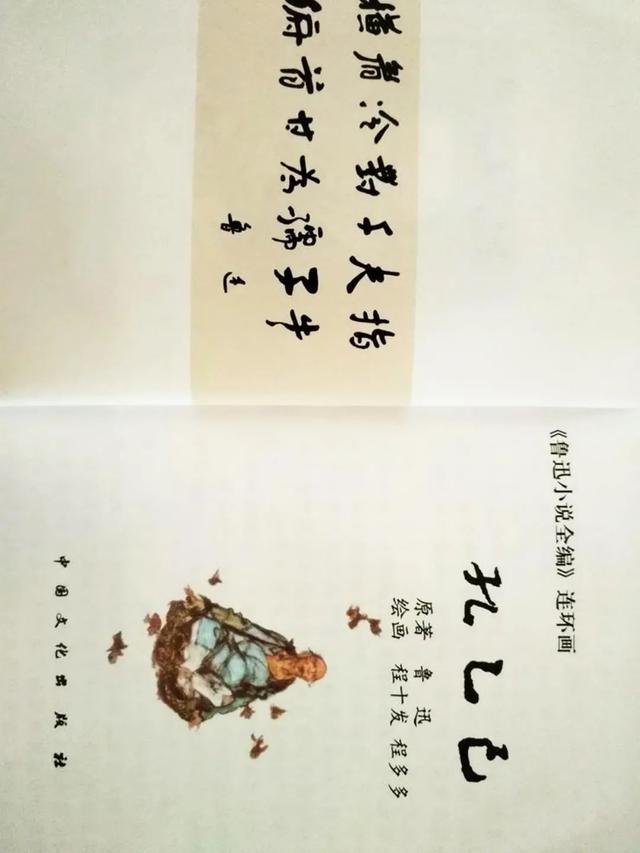 横眉冷對千夫指
俯首甘為孺子牛
鲁迅
《鲁迅小说全编》连环画
孔乙己
原著 鲁迅
绘画 程十发 程多多
中国文化出版社